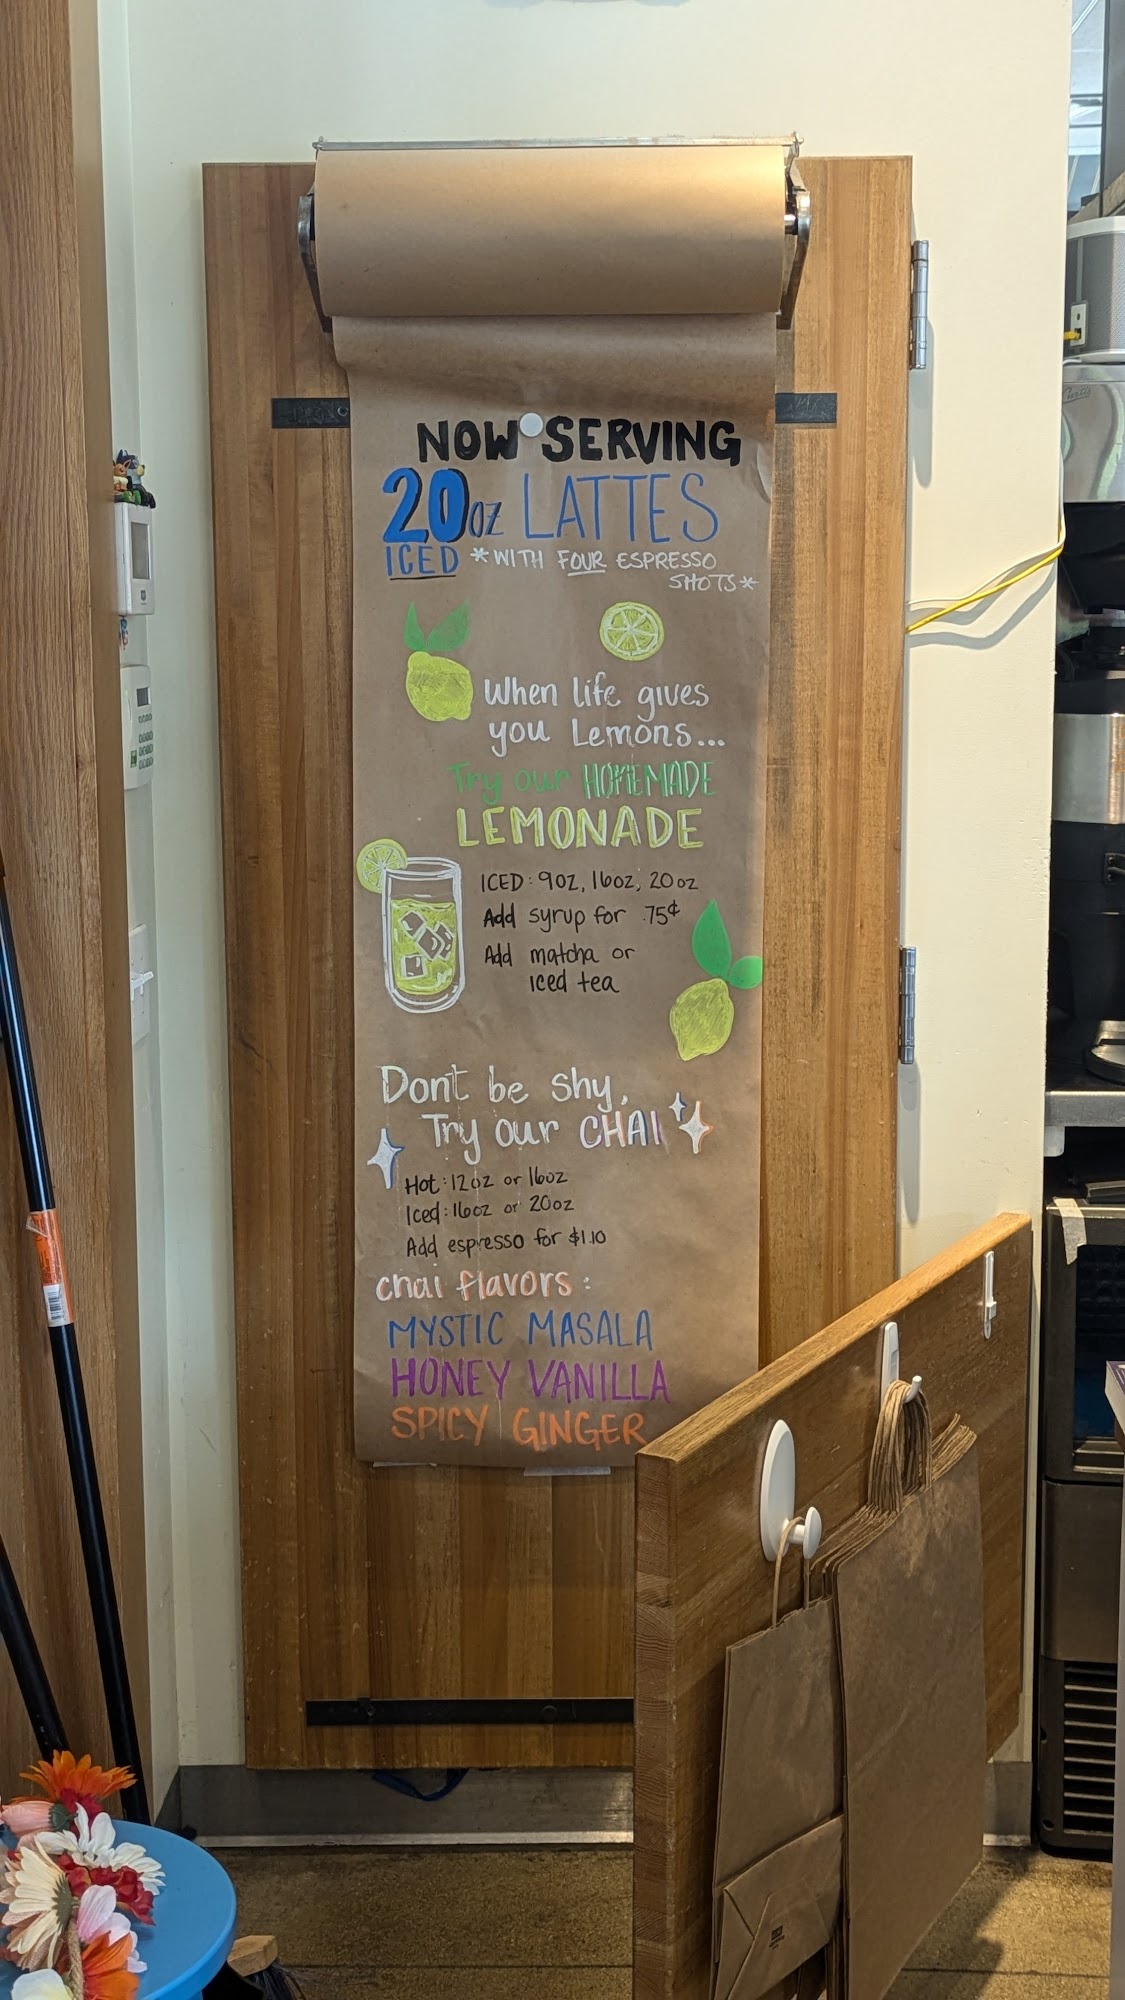 NOW SERVING
20oz LATTES
ICED *WITH FOUR ESPRESSO
SHOTS*
When life gives
you Lemons...
Try our HOMEMADE
LEMONADE
ICED: 9oz, 16oz, 20oz
Add syrup for .75¢
Add matcha or
iced tea
Dont be shy,
Try our CHAI
Hot: 12oz or 16oz
Iced: 16oz or 20oz
Add espresso for $1.10
chai flavors:
MYSTIC MASALA
HONEY VANILLA
SPICY GINGER
Curtis